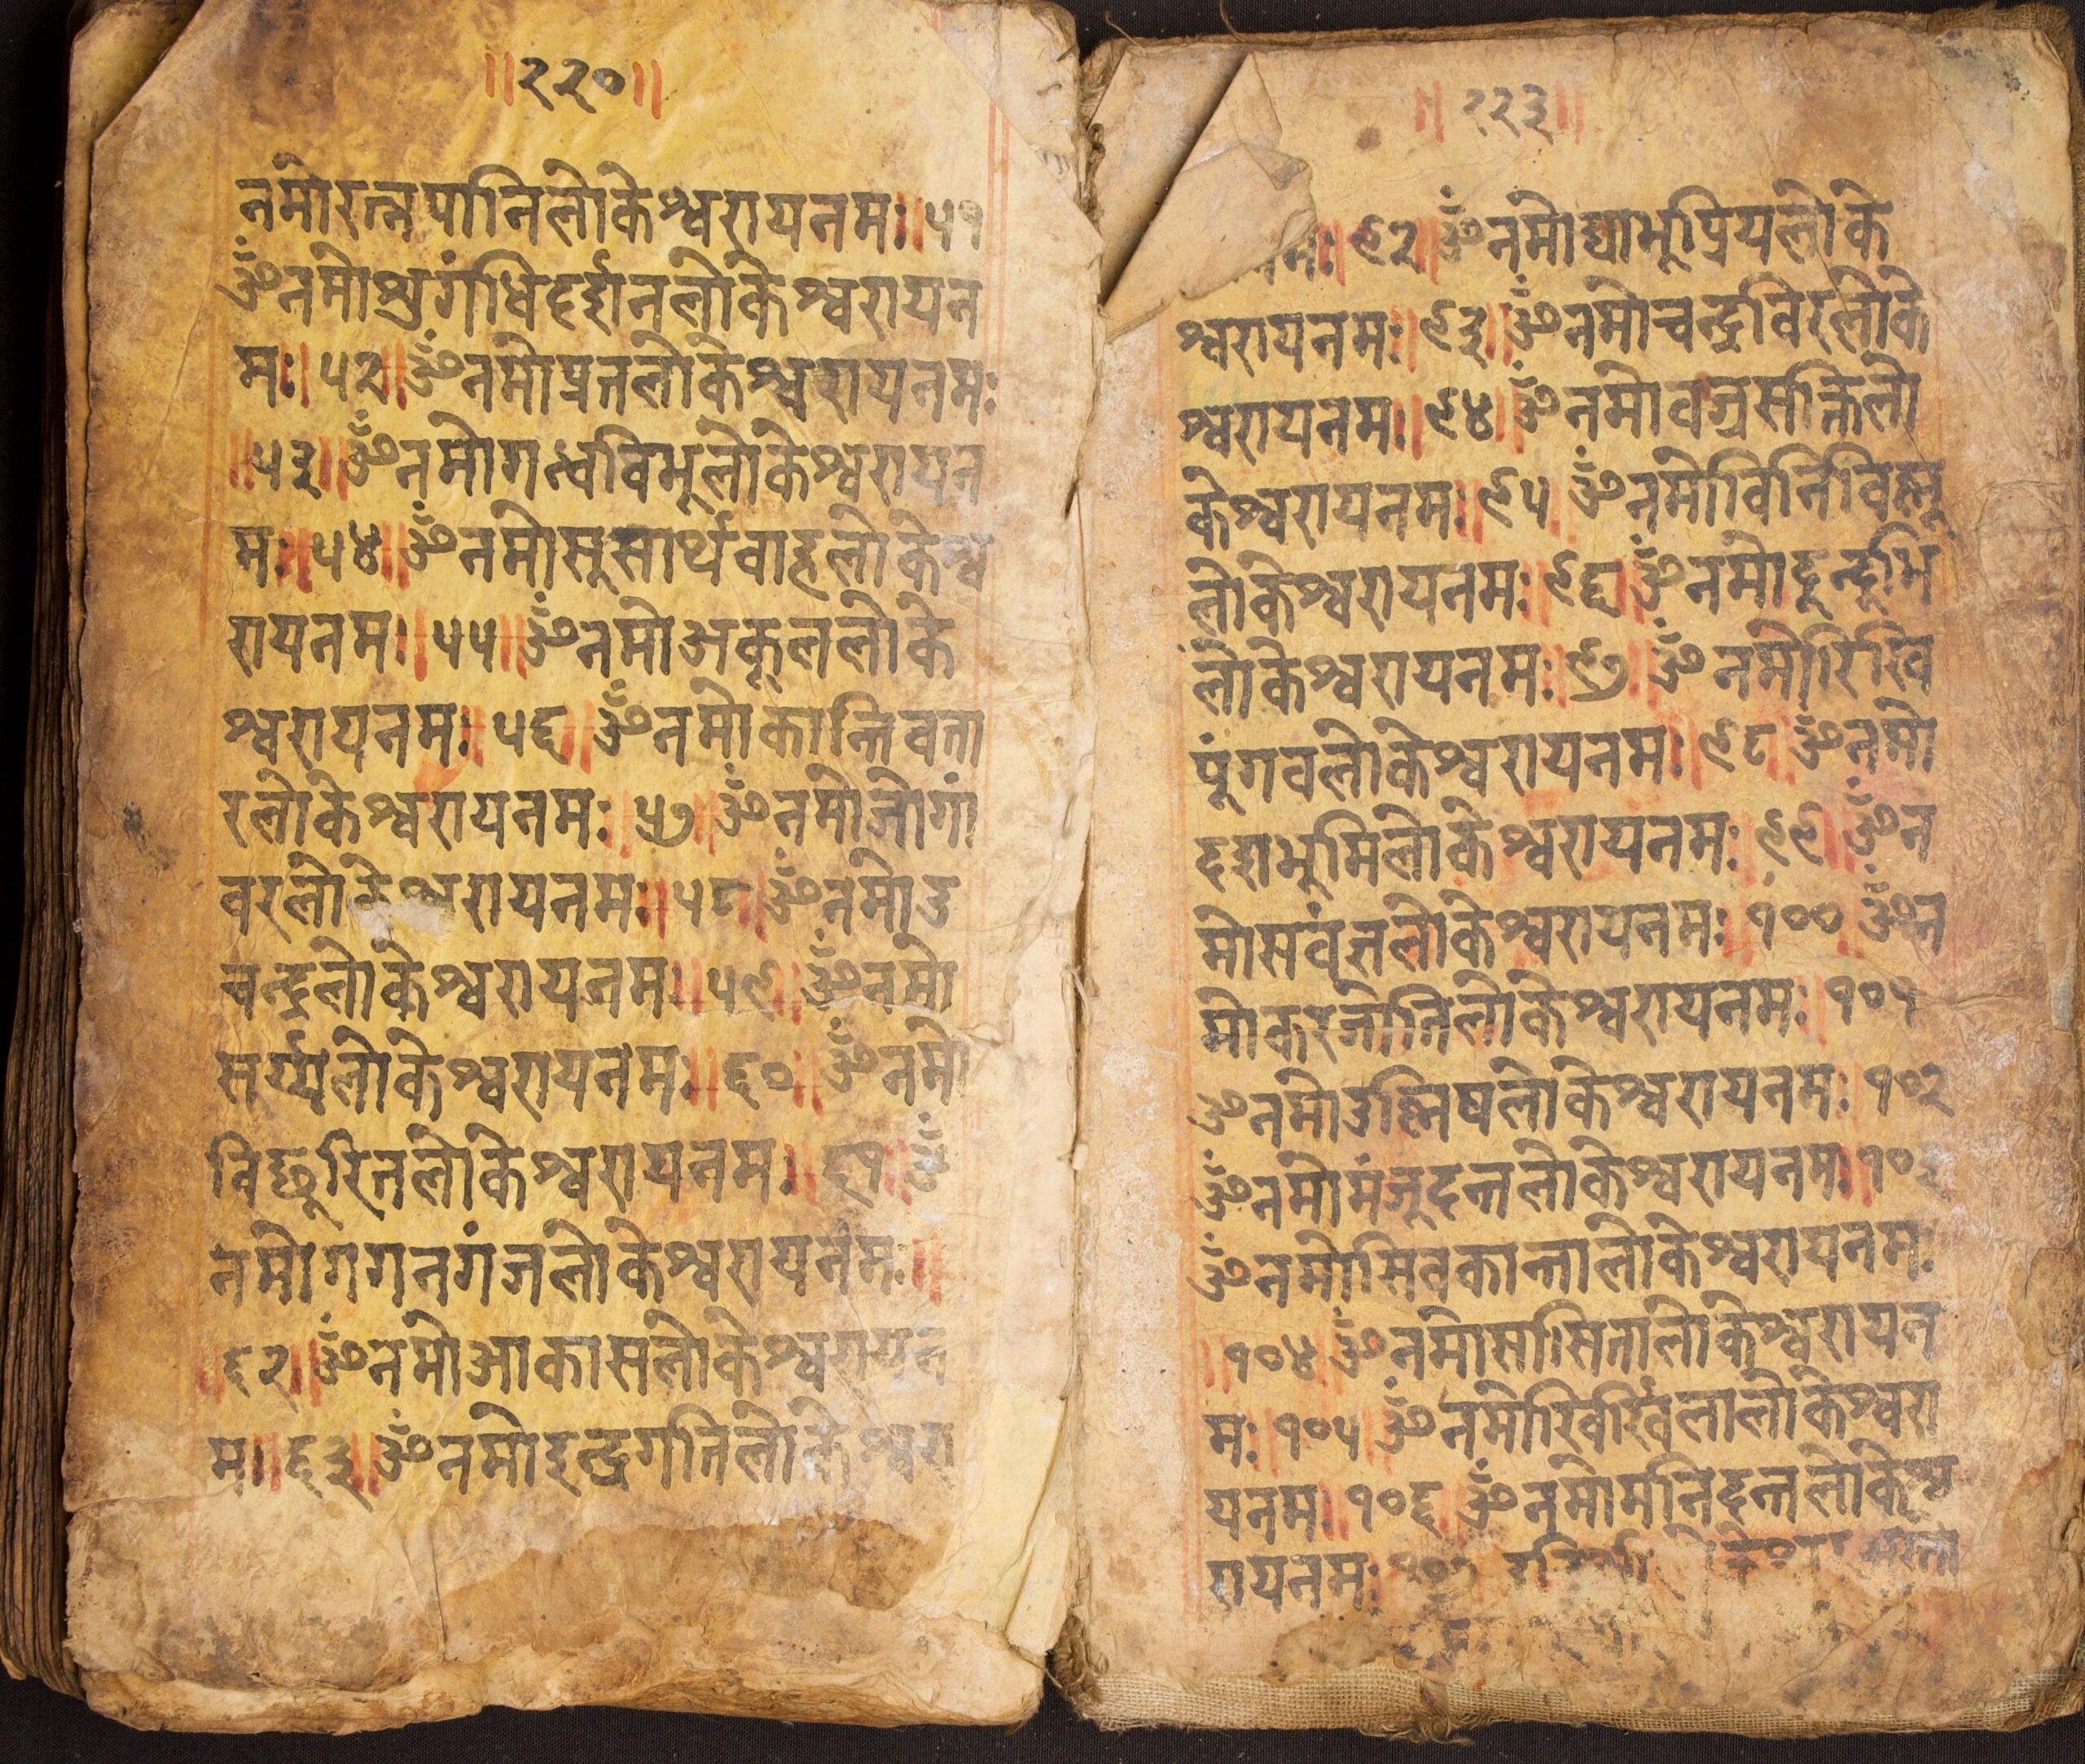 ॥२२०॥
नमोरत्नपानिलोकेश्वरायनमः॥५१
ॐनमोश्रगंधिदर्द्दानलोकेश्वरायन
मः॥५२॥ॐनमोप्रत्तलोकेश्वरायनमः
॥५३॥ॐनमोगन्धविभूलोकेश्वरायन
मः॥५४॥ॐनमोसुसार्थवाहलोकेश्व
रायनमः॥५५॥ॐनमोअकूललोके
श्वरायनमः॥५६॥ॐनमोकान्तिवता
रलोकेश्वरायनमः॥५७॥ॐनमोजोगां
वरलोकेश्वरायनमः॥५८॥ॐनमोउ
चन्द्रलोकेश्वरायनमः॥५९॥ॐनमो
सर्य्यलोकेश्वरायनमः॥६०॥ॐनमो
विच्छुरितलोकेश्वरायनमः॥६१॥ॐ
नमोगगनगंजलोकेश्वरायनमः॥
६२॥ॐनमोआकासलोकेश्वरायन
मः॥६३॥ॐनमोइन्द्रगतिलोकेश्वरा
॥२२३॥
नमः॥९२॥ॐनमोद्याभूप्रियलोके
श्वरायनमः॥९३॥ॐनमोचन्द्रविरलोके
श्वरायनमः॥९४॥ॐनमोवज्रसक्तिलो
केश्वरायनमः॥९५॥ॐनमोविनिविह्मू
लोकेश्वरायनमः॥९६॥ॐनमोदून्दूभि
लोकेश्वरायनमः॥९७॥ॐनमोरिखि
पूंगवलोकेश्वरायनमः॥९८॥ॐनमो
दद्दाभुमिलोकेश्वरायनमः॥९९॥ॐन
मोसवंृतलोकेश्वरायनमः॥१००॥ॐन
मोकरंजोतिलोकेश्वरायनमः॥१०१
ॐनमोउह्निषलोकेश्वरायनमः॥१०२
ॐनमोमंजूदन्तलोकेश्वरायनमः॥१०३
ॐनमोसितकान्तालोकेश्वरायनमः
॥१०४॥ॐनमोसासितालोकेश्वरायन
मः॥१०५॥ॐनमोखिर्खिलालोकेश्वरा
यनमः॥१०६॥ॐनमोमनिदन्तलोकेश्व
रायनमः॥१०७